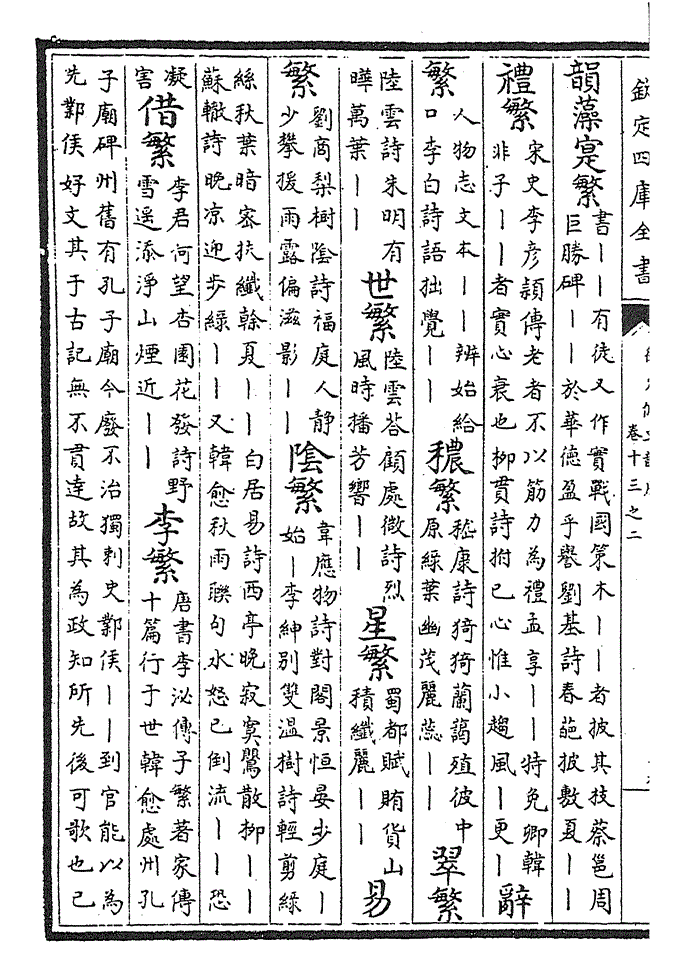 欽定四庫全書
卷十三之二
韻藻寔繁
書——有徒又作實戰國策木——者披其技蔡邕周
巨勝碑——於華德盈乎譽劉基詩春葩披敷夏——
禮繁
宋史李彦頴傳老者不以筋力為禮孟享——特免卿韓
非子——者實心衰也柳貫詩拊已心惟小趨風——更—
辭
繁
人物志文本——辨始給
口李白詩語拙覺——
穠繁
嵇康詩猗猗蘭藹殖彼中
原緑葉幽茂麗蕊——
翠繁
陸雲詩朱明有
曄萬葉——
世繁
陸雲荅顧處微詩烈
風時播芳響——
星繁
蜀都賦賄貨山
積纖麗——
易
繁
劉商梨樹陰詩福庭人靜
少攀援雨露偏滋影——
陰繁
韋應物詩對閣景恒晏步庭—
始—李紳别雙温樹詩輕剪緑
絲秋葉暗密扶纖榦夏——白居易詩西亭晚寂寞鶯散柳——
蘇轍詩晚凉迎步緑——又韓愈秋雨聨句水怒已倒流——恐
凝
害
借繁
李君何望杏園花發詩野
雪遥添淨山煙近——
李繁
唐書李泌傳子繁著家傳
十篇行于世韓愈處州孔
子廟碑州舊有孔子廟今廢不治獨刺史鄴侯——到官能以為
先鄴侯好文其于古記無不貫達故其為政知所先後可歌也已